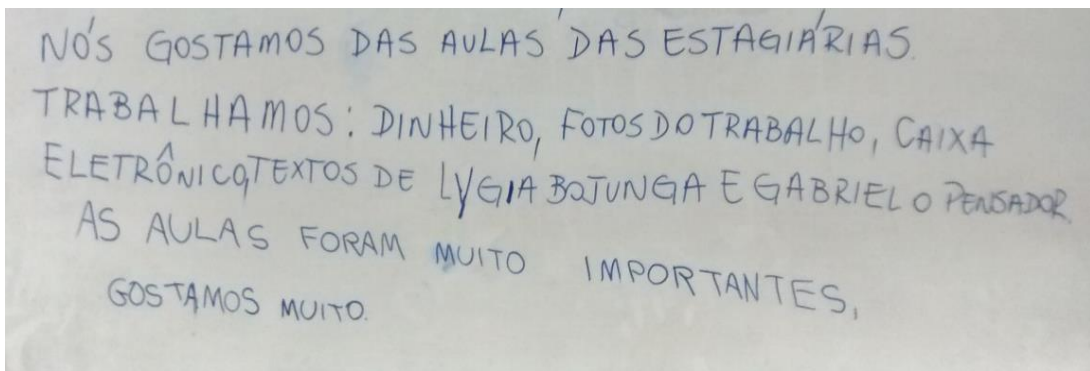 NÓS GOSTAMOS DAS AULAS DAS ESTAGIÁRIAS.
TRABALHAMOS: DINHEIRO, FOTOS DO TRABALHO, CAIXA
ELETRÔNICO, TEXTOS DE LYGIA BOJUNGA E GABRIEL O PENSADOR.
AS AULAS FORAM MUITO IMPORTANTES,
GOSTAMOS MUITO.